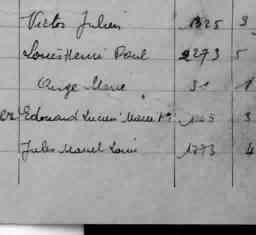 Victor Julien 1325 3
Louis Henri Paul 2293 5
Ange Marie 51 1
er Edouard Lucien Marie 3
Jules Marcel Louis 1773 4